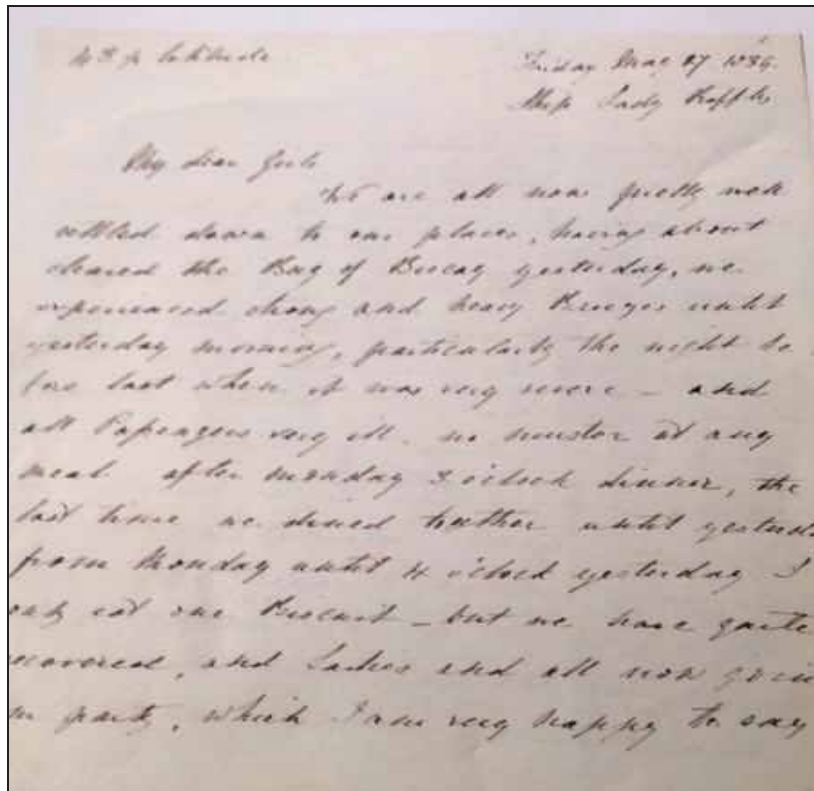 Friday May 27 1836.
Ship Lady Raffles
My dear Girls
We are all now pretty well
settled down to our places, having about
cleared the Bay of Biscay yesterday, we
experienced strong and heavy Breezes until
yesterday morning, particularly the night be
fore last when it was very severe – and
all Passengers very ill. no muster at any
meal after monday 3 oclock dinner, the
last time we dined together until yesterd
from Monday until 4 oclock yesterday I
only eat one Biscuit – but we have quite
recovered, and Ladies and all now join
party, which I am very happy to say